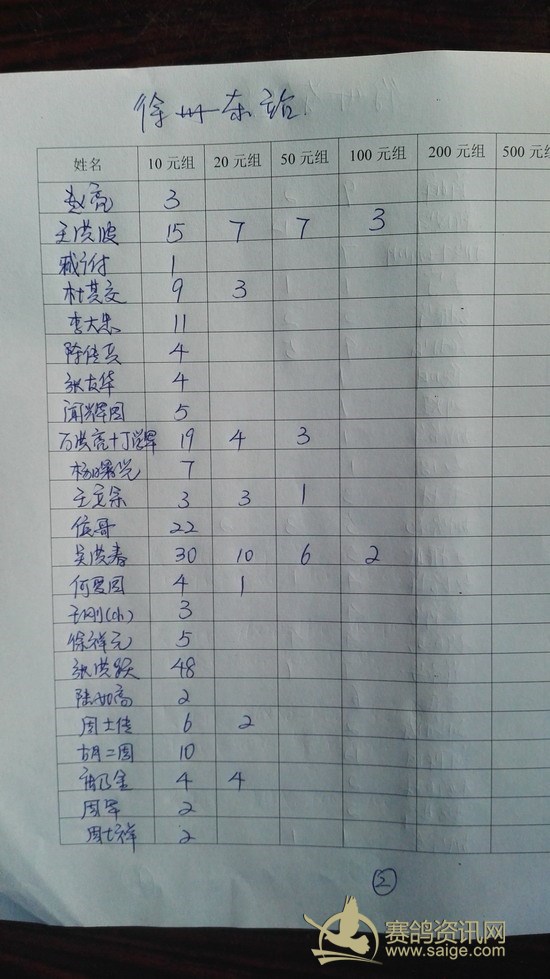 徐州东站
姓名 10元组 20元组 50元组 100元组 200元组 500元组
赵亮 3
王洪波 15 7 7 3
臧付 1
杜其文 9 3
李大忠 11
陈传兵 4
张友华 4
闻辉国 5
万洪亮+丁学军 19 4 3
杨曙光 7
王立宗 3 3 1
侯哥 22
吴洪春 30 10 6 2
何思国 4 1
子刚(小) 3
徐祥元 5
张洪跃 48
陆如高 2
周士传 6 2
胡二周 10
4 4
周军 2
周士祥 2
②
赛鸽资讯网
www.saige.com